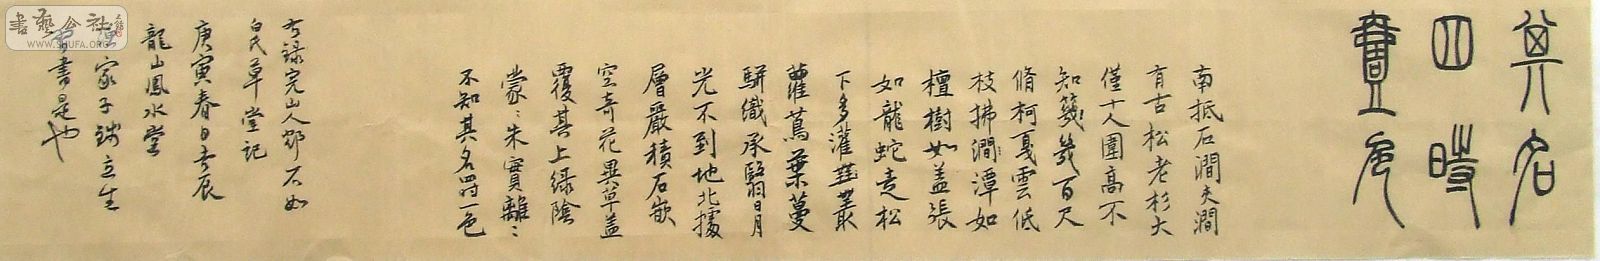 其名
四時
壹色
南抵石澗夾澗
有古松老杉大
僅十人圍高不
知幾百尺
脩柯戛雲低
枝拂澗潭如
檀樹如盖張
如龍蛇走松
下多灌叢
蘿蔦葉蔓
駢織承翳日月
光不到地北據
層嚴積石嵌
空奇花異草盖
覆其上綠陰
蒙〻朱實離〻
不知其名四時一色
白氏草堂記
庚寅春日
龍山鳳水堂
家子主生
書是也
書藝公社
WWW.SHUFA.ORG